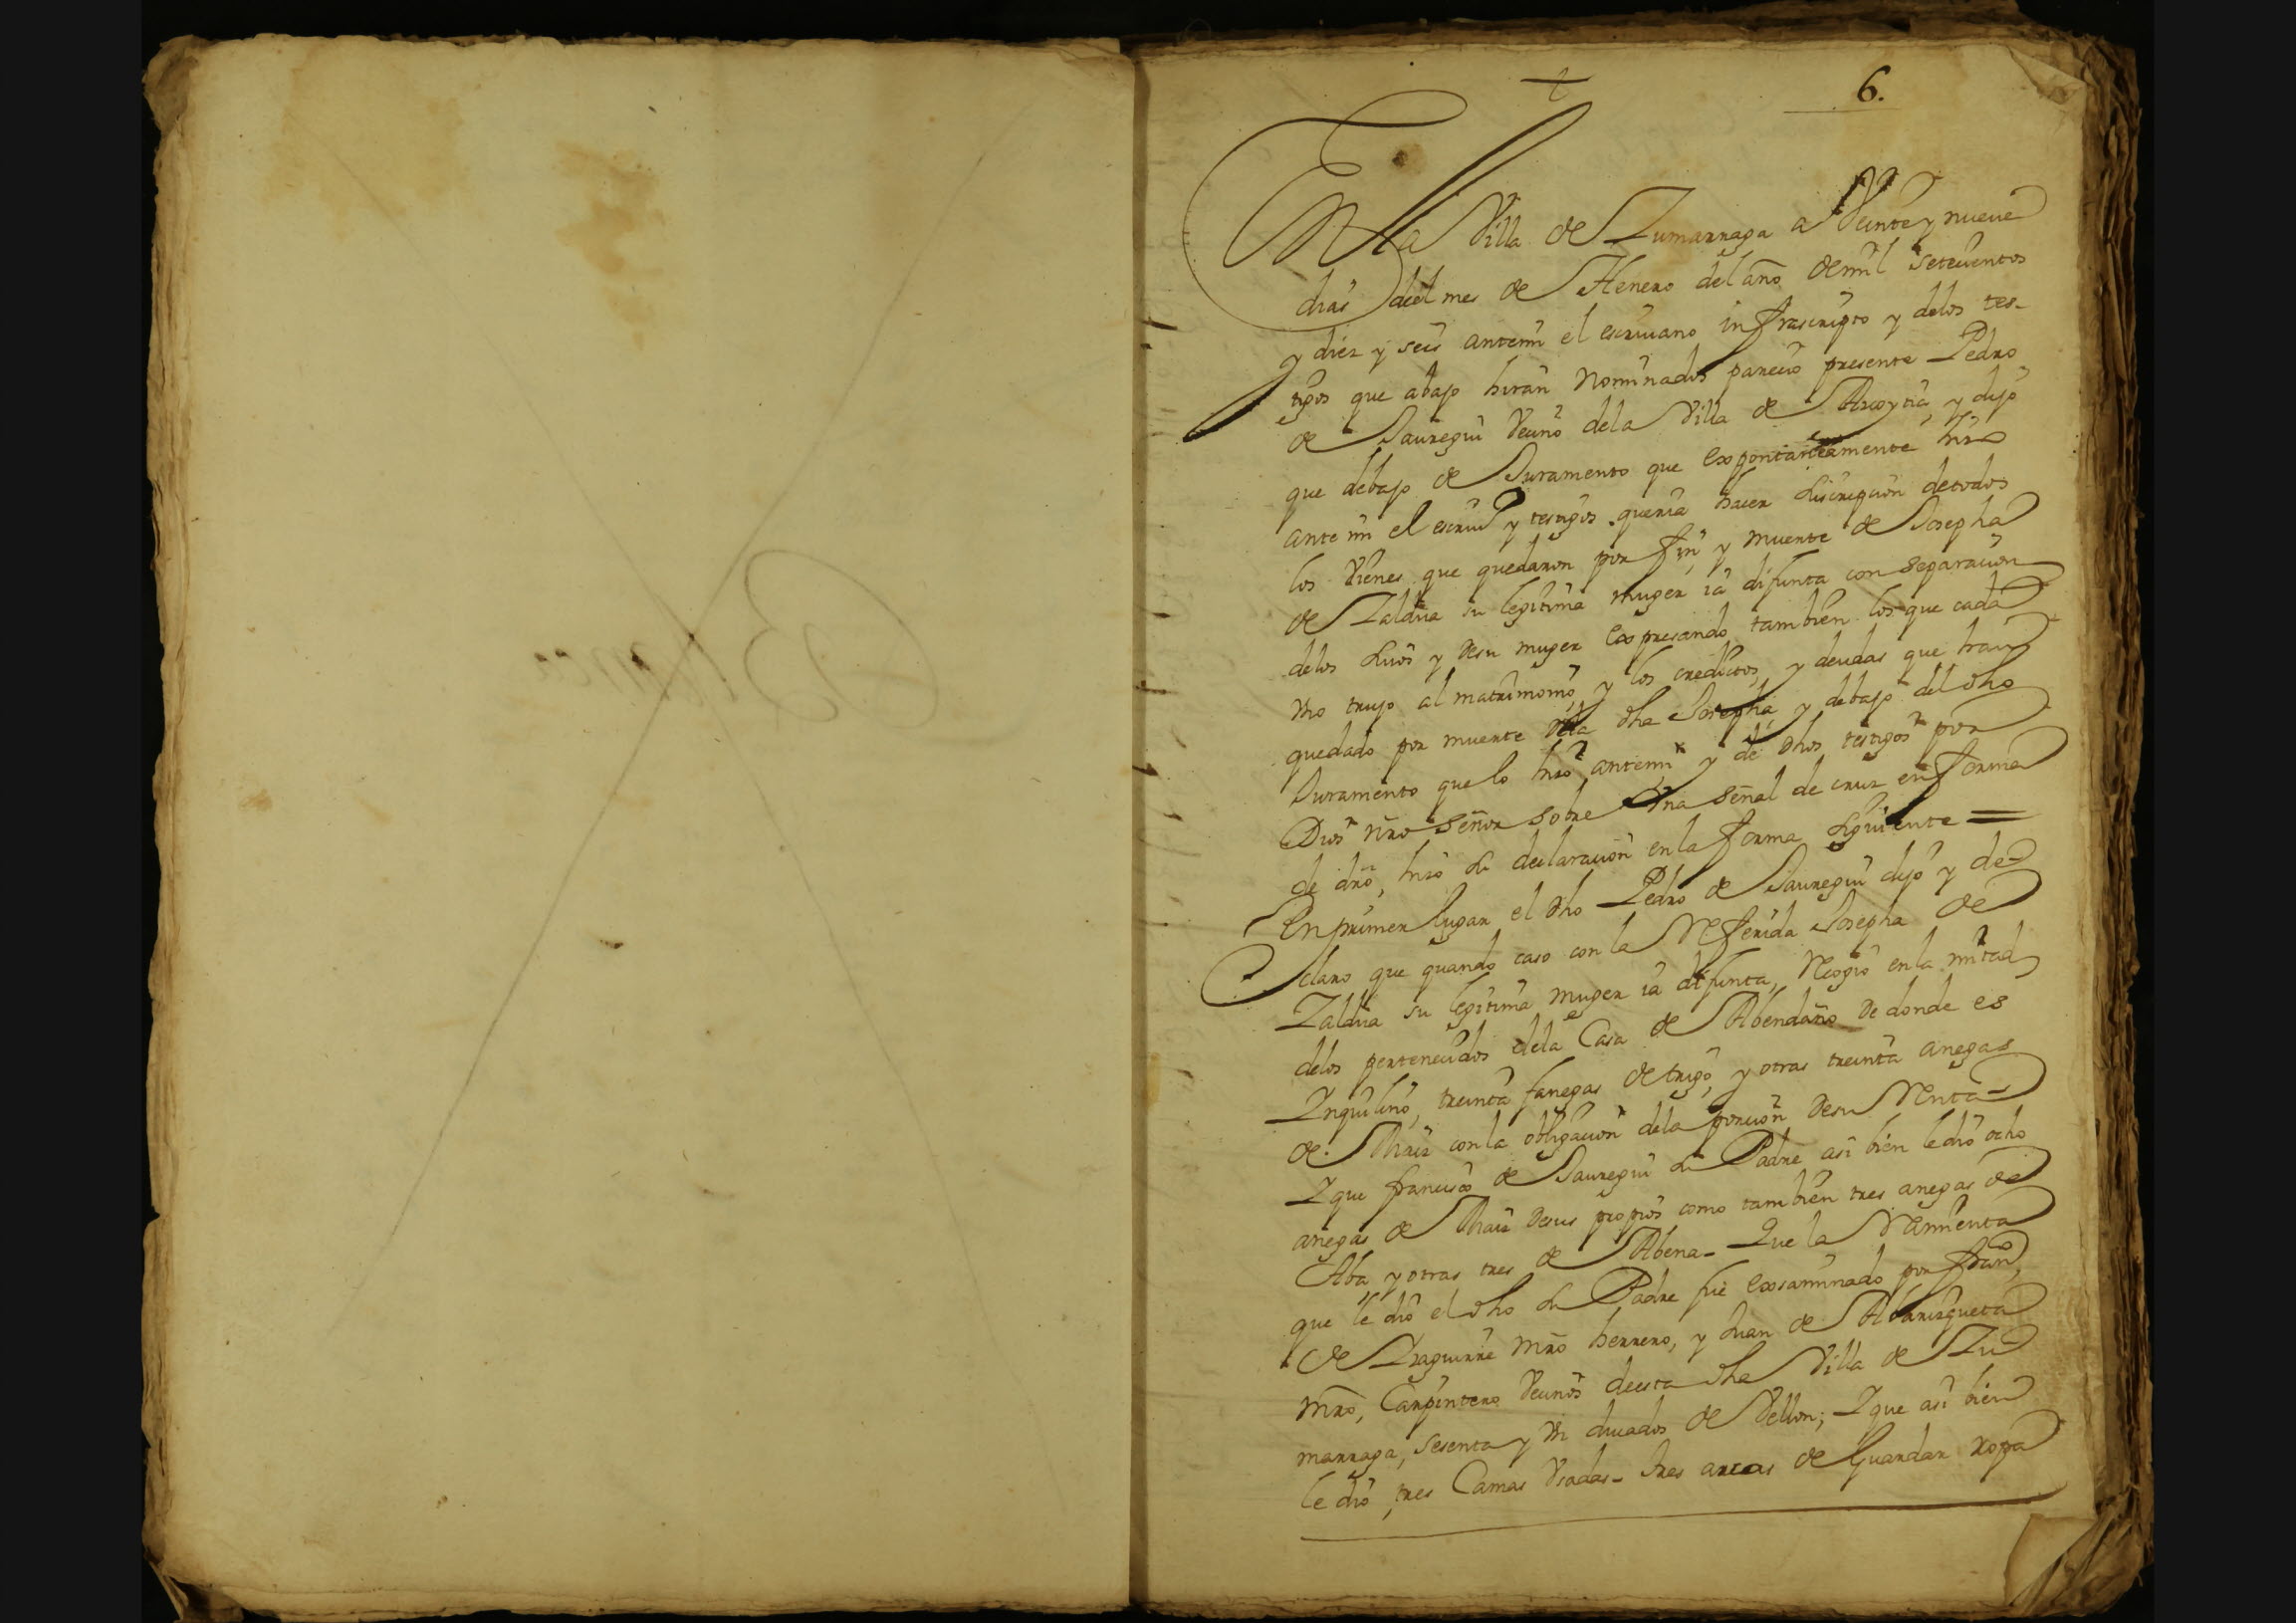 6.
En la Villa de Zumarraga a Veinte y nueue
dias del mes de Henero del año de mil setecientos
y diez y seis antemi el escriuano infrascripto y delos tes-
tigos que abajo hiran nominados parecio presente Pedro
de Jauregui Vecino dela Villa de Azcoytia, y dijo
que debajo de Juramento que expontaneamente hizo
ante mi el escriuo y testigos queria hacer discripcion detodos
los Vienes que quedaron por fin y muerte de Josepha
de Zaldua su legitima muger ia difunta con separacion
delos suios y desu muger expresando tambien los que cada
vno trujo al matrimonio, y los creditos, y deudas que han
quedado por muerte dela dha Josepha, y debajo del dho
Juramento que lo hizo antemi y de dhos testigos por
Dios nro señor sobre Vna señal de cruz en forma
de dro, hizo su declaracion en la forma siguiente =
En primer lugar el dho Pedro de Jauregui dijo y de-
claro que quando caso con la Referida Josepha de
Zaldua su legitima muger ia difunta, Recogio en la mitad
delos pertenecidos dela Casa de Abendaño de donde es
Ynquilino, treinta fanegas de trigo, y otras treinta anegas
de Maiz con la obligacion dela porcion desu Renta-
Y que francisco de Jauregui su Padre asi bien le dio ocho
anegas de Maiz desus propios como tambien tres anegas de
Aba, y otras tres de Abena- Que la Ramienta
que le dio el dho su Padre fue exsaminado por franco
de Yzaguirre Mro herrero, y Juan de Albarizqueta
Mro, Carpintero Vecinos deesta dha Villa de Zu
marraga, sesenta y Vn ducados de Vellon; Y que asi bien
le dio, tres Camas Vsadas- tres arcas de Guardar ropa